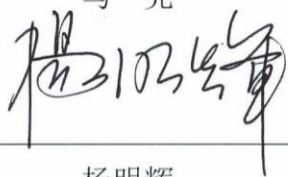 楊明辉
杨明辉